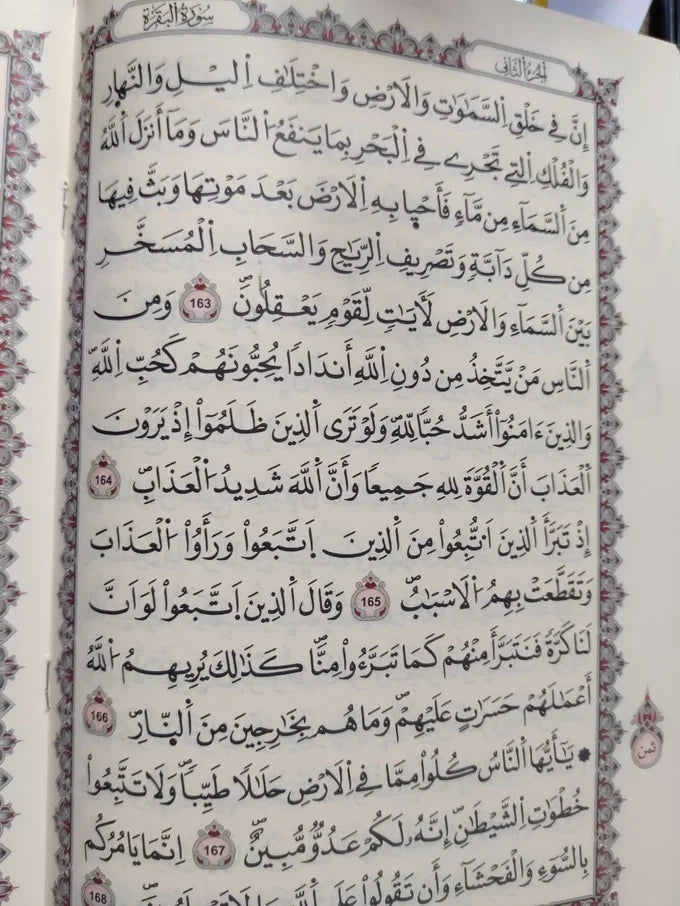 الجزء الثاني
سُورَةُ الْبَقَرَةِ
إِنَّ فِي خَلْقِ اِ۬لسَّمَٰوَٰتِ وَالَارْضِ وَاخْتِلَٰفِ اِ۬ليْلِ وَالنَّهَارِ
وَالْفُلْكِ اِ۬لتِے تَجْرِے فِے اِ۬لْبَحْرِ بِمَا يَنفَعُ اُ۬لنَّاسَ وَمَآ أَنزَلَ اَ۬للَّهُ
مِنَ اَ۬لسَّمَآءِ مِن مَّآءٖ فَأَحْيٖا بِهِ اِ۬لَارْضَ بَعْدَ مَوْتِهَا وَبَثَّ فِيهَا
مِن كُلِّ دَآبَّةٖ وَتَصْرِيفِ اِ۬لرِّيَٰحِ وَالسَّحَابِ اِ۬لْمُسَخَّرِ
بَيْنَ اَ۬لسَّمَآءِ وَالَارْضِ لَأٓيَٰتٖ لِّقَوْمٖ يَعْقِلُونَۖ 163 وَمِنَ
اَ۬لنَّاسِ مَنْ يَّتَّخِذُ مِن دُونِ اِ۬للَّهِ أَندَاداٗ يُحِبُّونَهُمْ كَحُبِّ اِ۬للَّهِۖ
وَالذِينَ ءَامَنُوٓاْ أَشَدُّ حُبّاٗ لِّلهِۖ وَلَوْ تَرَى اَ۬لذِينَ ظَلَمُوٓاْ إِذْ يَرَوْنَ
اَ۬لْعَذَابَ أَنَّ اَ۬لْقُوَّةَ لِلهِ جَمِيعاٗ وَأَنَّ اَ۬للَّهَ شَدِيدُ اُ۬لْعَذَابِۖ 164
إِذْ تَبَرَّأَ اَ۬لذِينَ اَ۟تُّبِعُواْ مِنَ اَ۬لذِينَ اَ۪تَّبَعُواْ وَرَأَوُاْ اُ۬لْعَذَابَ
وَتَقَطَّعَتْ بِهِمُ اُ۬لَاسْبَٰبُۖ 165 وَقَالَ اَ۬لذِينَ اَ۪تَّبَعُواْ لَوَ اَنَّ
لَنَا كَرَّةٗ فَنَتَبَرَّأَ مِنْهُمْ كَمَا تَبَرَّءُواْ مِنَّاۖ كَذَٰلِكَ يُرِيهِمُ اُ۬للَّهُ
أَعْمَٰلَهُمْ حَسَرَٰتٍ عَلَيْهِمْۖ وَمَا هُم بِخَٰرِجِينَ مِنَ اَ۬لنّ۪ارِۖ 166
۞ يَٰٓأَيُّهَا اَ۬لنَّاسُ كُلُواْ مِمَّا فِے اِ۬لَارْضِ حَلَٰلاٗ طَيِّباٗۖ وَلَا تَتَّبِعُواْ
خُطْوَٰتِ اِ۬لشَّيْطَٰنِۖ إِنَّهُۥ لَكُمْ عَدُوّٞ مُّبِينٌۖ 167 اِنَّمَا يَامُرُكُم
بِالسُّوٓءِ وَالْفَحْشَآءِ وَأَن تَقُولُواْ عَلَى اَ۬للَّهِ مَا لَا تَعْلَمُونَۖ 168
ثمن